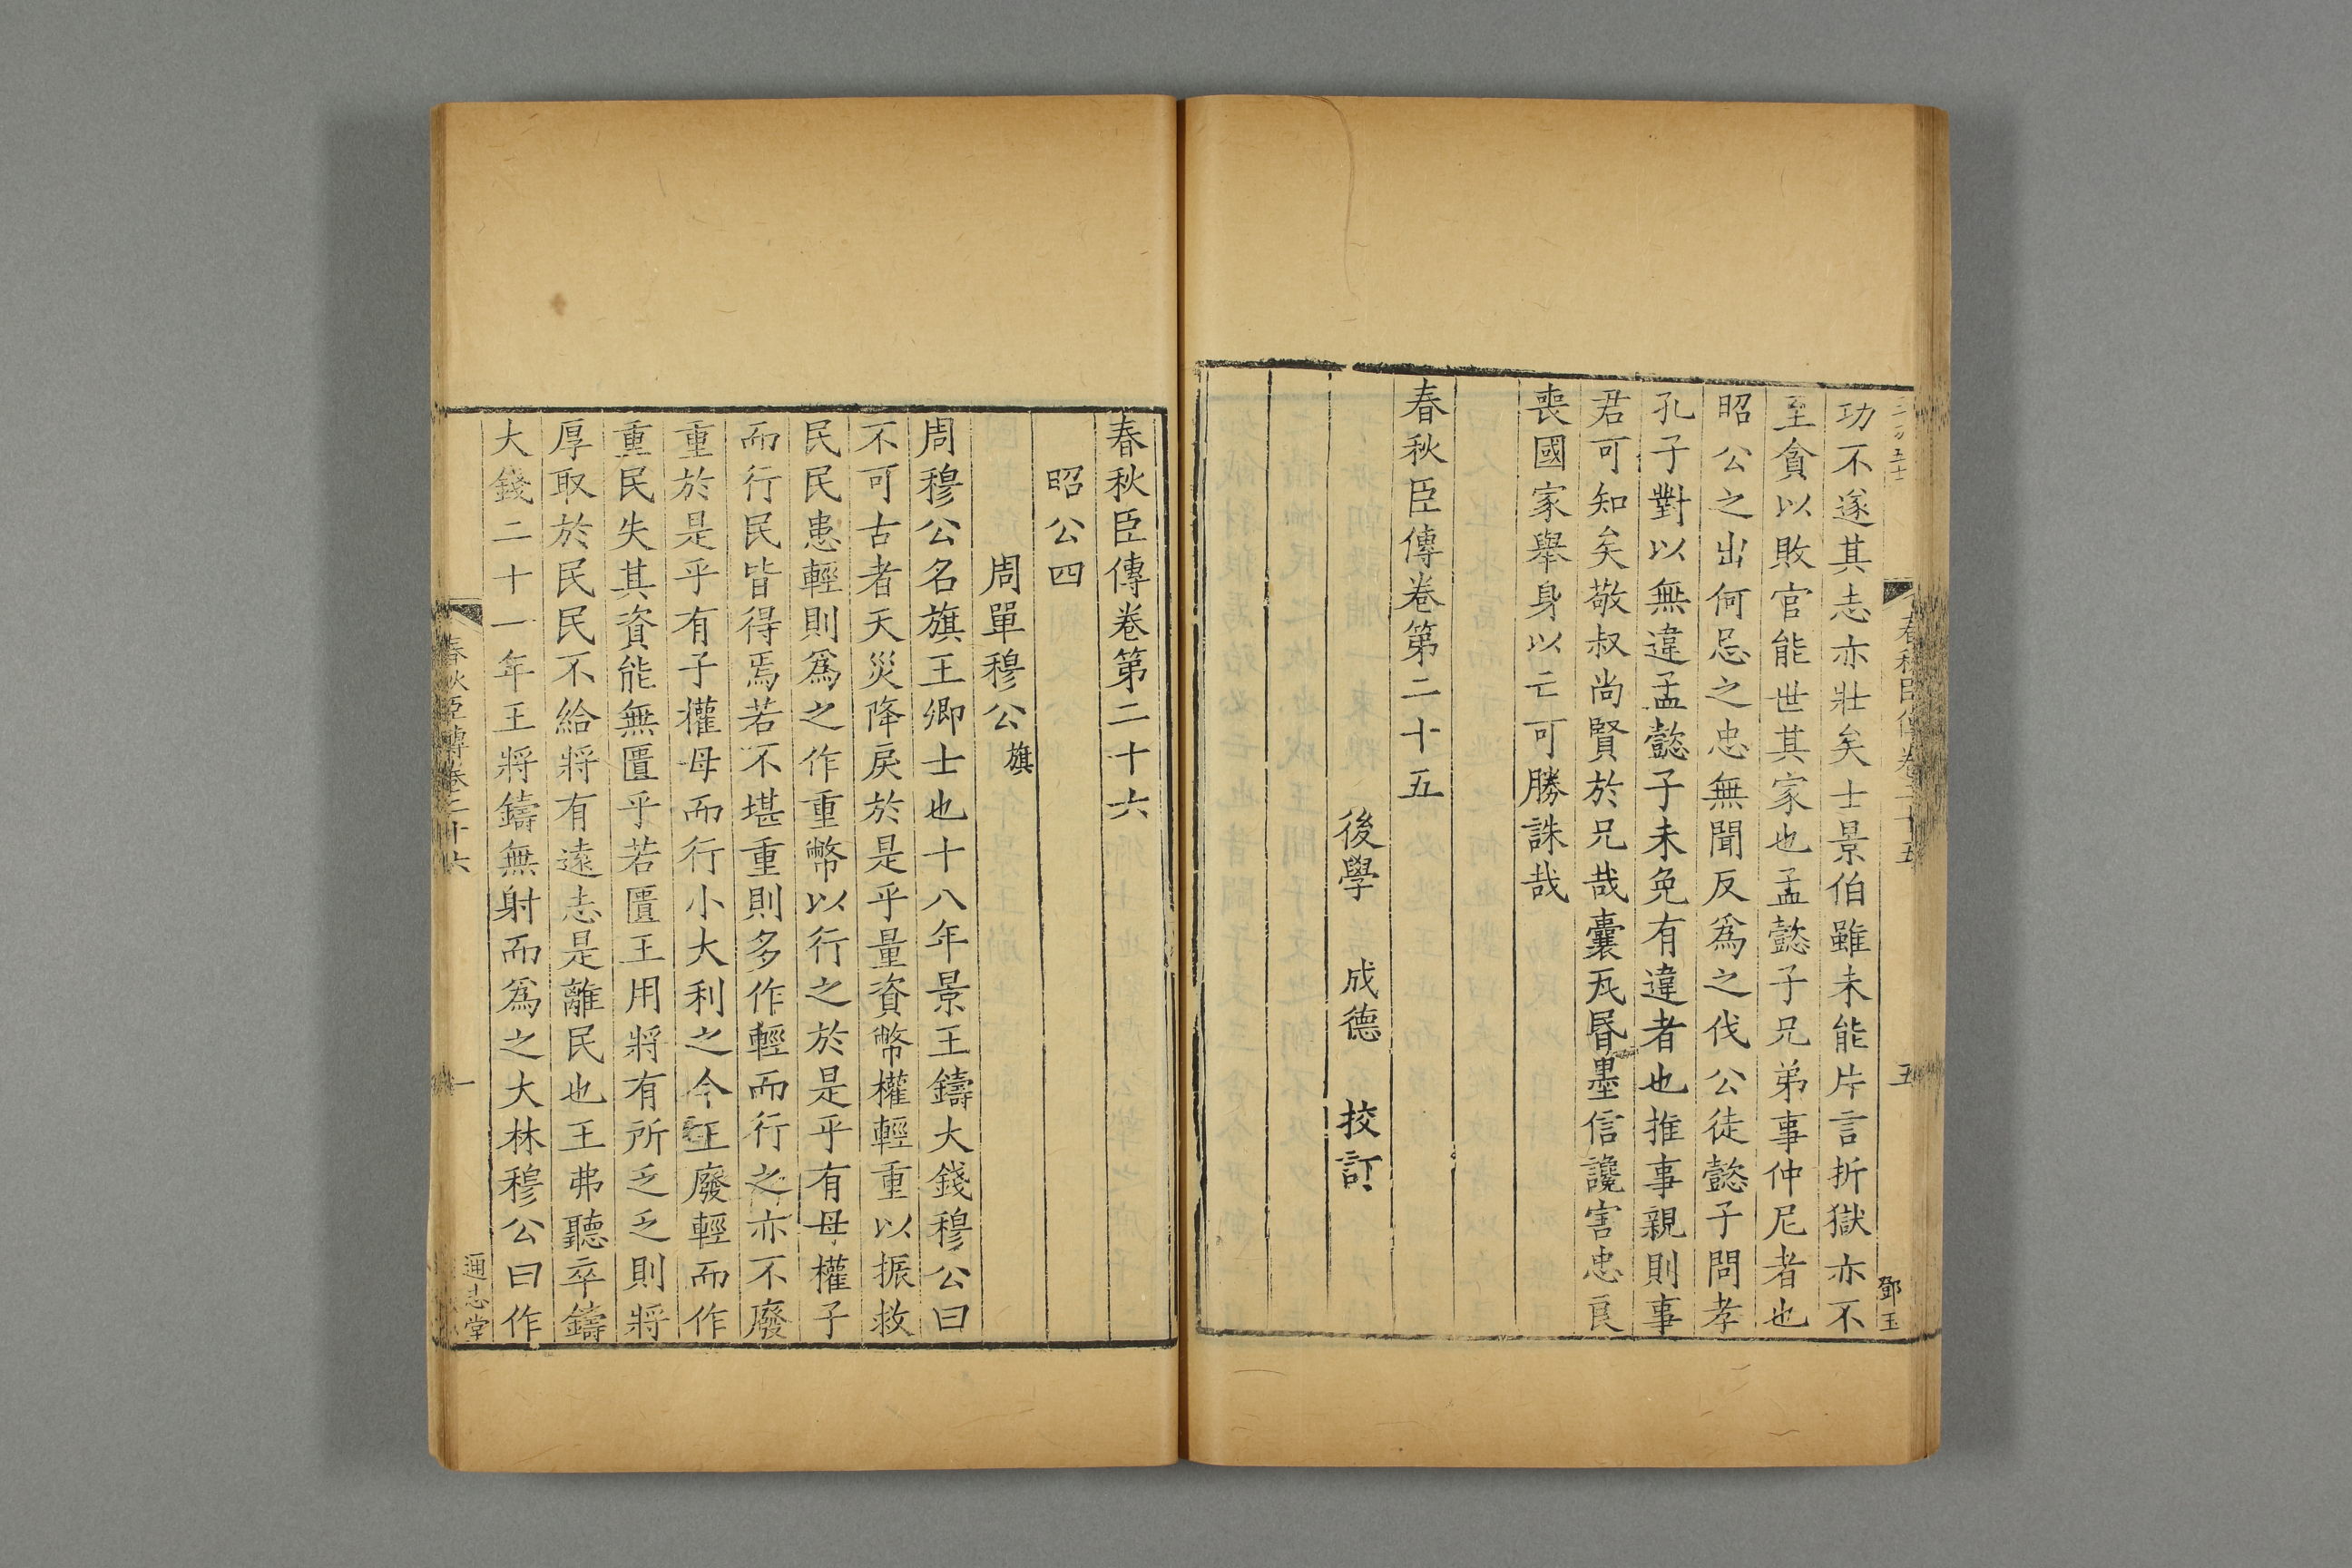 功不遂其志亦壯矣士景伯雖未能片言折獄亦不
至貪以敗官能世其家也孟懿子兄弟事仲尼者也
昭公之出何忌之忠無聞反爲之伐公徒懿子問孝
孔子對以無違孟懿子未免有違者也推事親則事
君可知矣敬叔尚賢於兄哉囊瓦昬墨信讒害忠良
喪國家舉身以亡可勝誅哉
春秋臣傳卷第二十五
後學 成德 校訂
春秋臣傳卷二十五 五 鄧玉
春秋臣傳卷第二十六
昭公四
周單穆公旗
周穆公名旗王卿士也十八年景王鑄大錢穆公曰
不可古者天災降戾於是乎量資幣權輕重以振救
民民患輕則爲之作重幣以行之於是乎有母權子
而行民皆得焉若不堪重則多作輕而行之亦不廢
重於是乎有子權母而行小大利之今王廢輕而作
重民失其資能無匱乎若匱王用將有所乏乏則將
厚取於民民不給將有遠志是離民也王弗聽卒鑄
大錢二十一年王將鑄無射而爲之大林穆公曰作
春秋臣傳卷二十六 一 通志堂